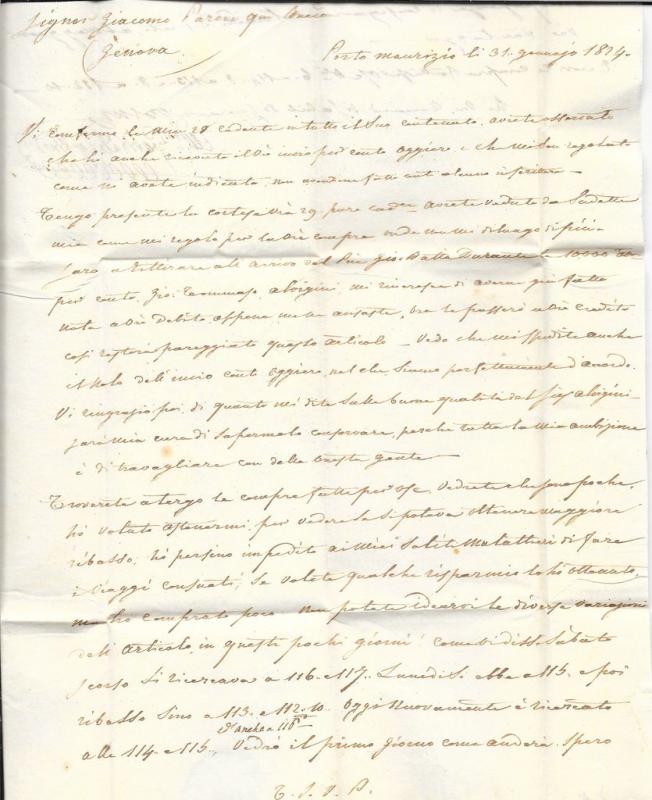 Signor Giacomo Parodi
Genova
Porto maurizio li 31. gennajo 1824.
Vi Confermo la mia 28 cadente in tutto il suo contenuto, avrete osservato
che ho anche ricevuto il invio per conto Oggiero, e che mi son regolato
come mi avete indicato, non avendone fatto alcuno
Tengo presente la cortese 29 pure cad.te avrete veduto da Suddetta
mia come mi regolo per compre, onde mi di luogo
a all'arrivo del Gio. Batta Durante le 10000
per conto Tommaso aloigini, mi rincresce di averne già fatto
nota a debito, appena passerò a credito
così resterà pareggiato questo articolo — Vedo che mi spedite anche
il Saldo dell'invio conto Oggiero, nel che siamo perfettamente d'accordo.
Vi ringrazio poi di quanto mi dite sulle buone qualità del Sig. aloigini
sarà mia cura di sapermelo conservare, perchè tutta la mia ambizione
è di travagliare con della onesta gente —
Troverete a tergo le compre fatte per Vedrete che sono poche,
hò voluto astenermi, per vedere se si poteva ottenere maggiore
ribasso; hò persino impedito ai miei Soliti Mulattieri di fare
i viaggi consueti; Se volete qualche risparmio lo hò ottenuto,
ma ho comprato poco. Non potete idearvi le diverse variazioni
dell'articolo, in questi pochi giorni! Come vi dissi Sabato
scorso si ricercava a 116 e 117. Lunedì si ebbe a 115. e poi
ribassò sino a 113. e 112.10 Oggi nuovamente è ricercato
ed anche a 116
alle 114 e 115., Vedrò il primo giorno come anderà. Spero
T. S. V. P.